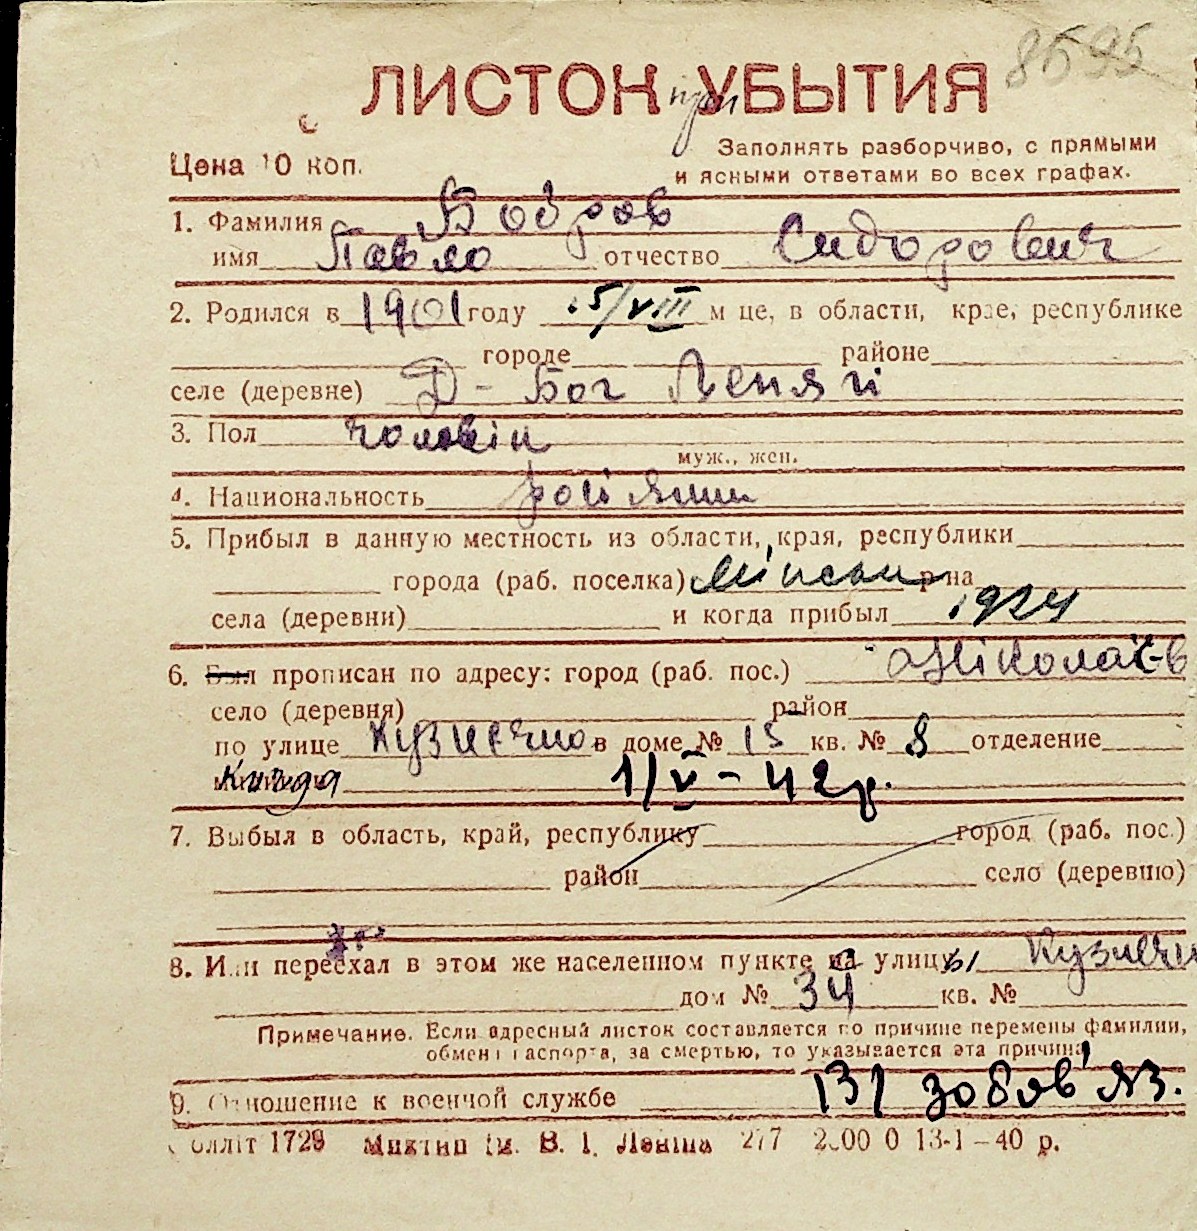 8595
ЛИСТОК при УБЫТИЯ
Цена 10 коп.
Заполнять разборчиво, с прямыми
и ясными ответами во всех графах.
1. Фамилия Бобров
имя Павло отчество Сидорович
2. Родился в 1901 году 15/VIII м це, в области, крае, республике
городе районе
селе (деревне) Д- Бог
3. Пол чоловік
муж., жен.
4. Национальность
5. Прибыл в данную местность из области, края, республики
города (раб. поселка) р-на
села (деревни) и когда прибыл 1924
6. Был прописан по адресу: город (раб. пос.) Міколаїв
село (деревня) район
по улице Кузнечно в доме № 15 кв. № 8 отделение
1/V - 42 р.
7. Выбыл в область, край, республику город (раб. пос.)
район село (деревню)
8. Или переехал в этом же населенном пункте на улицы
дом № 34 кв. №
Примечание. Если адресный листок составляется по причине перемены фамилии,
обмена паспорта, за смертью, то указывается эта причина
9. Отношение к военной службе 131 зобов'яз.
1729 ім. В. І. Леніна 277 13-1-40 р.